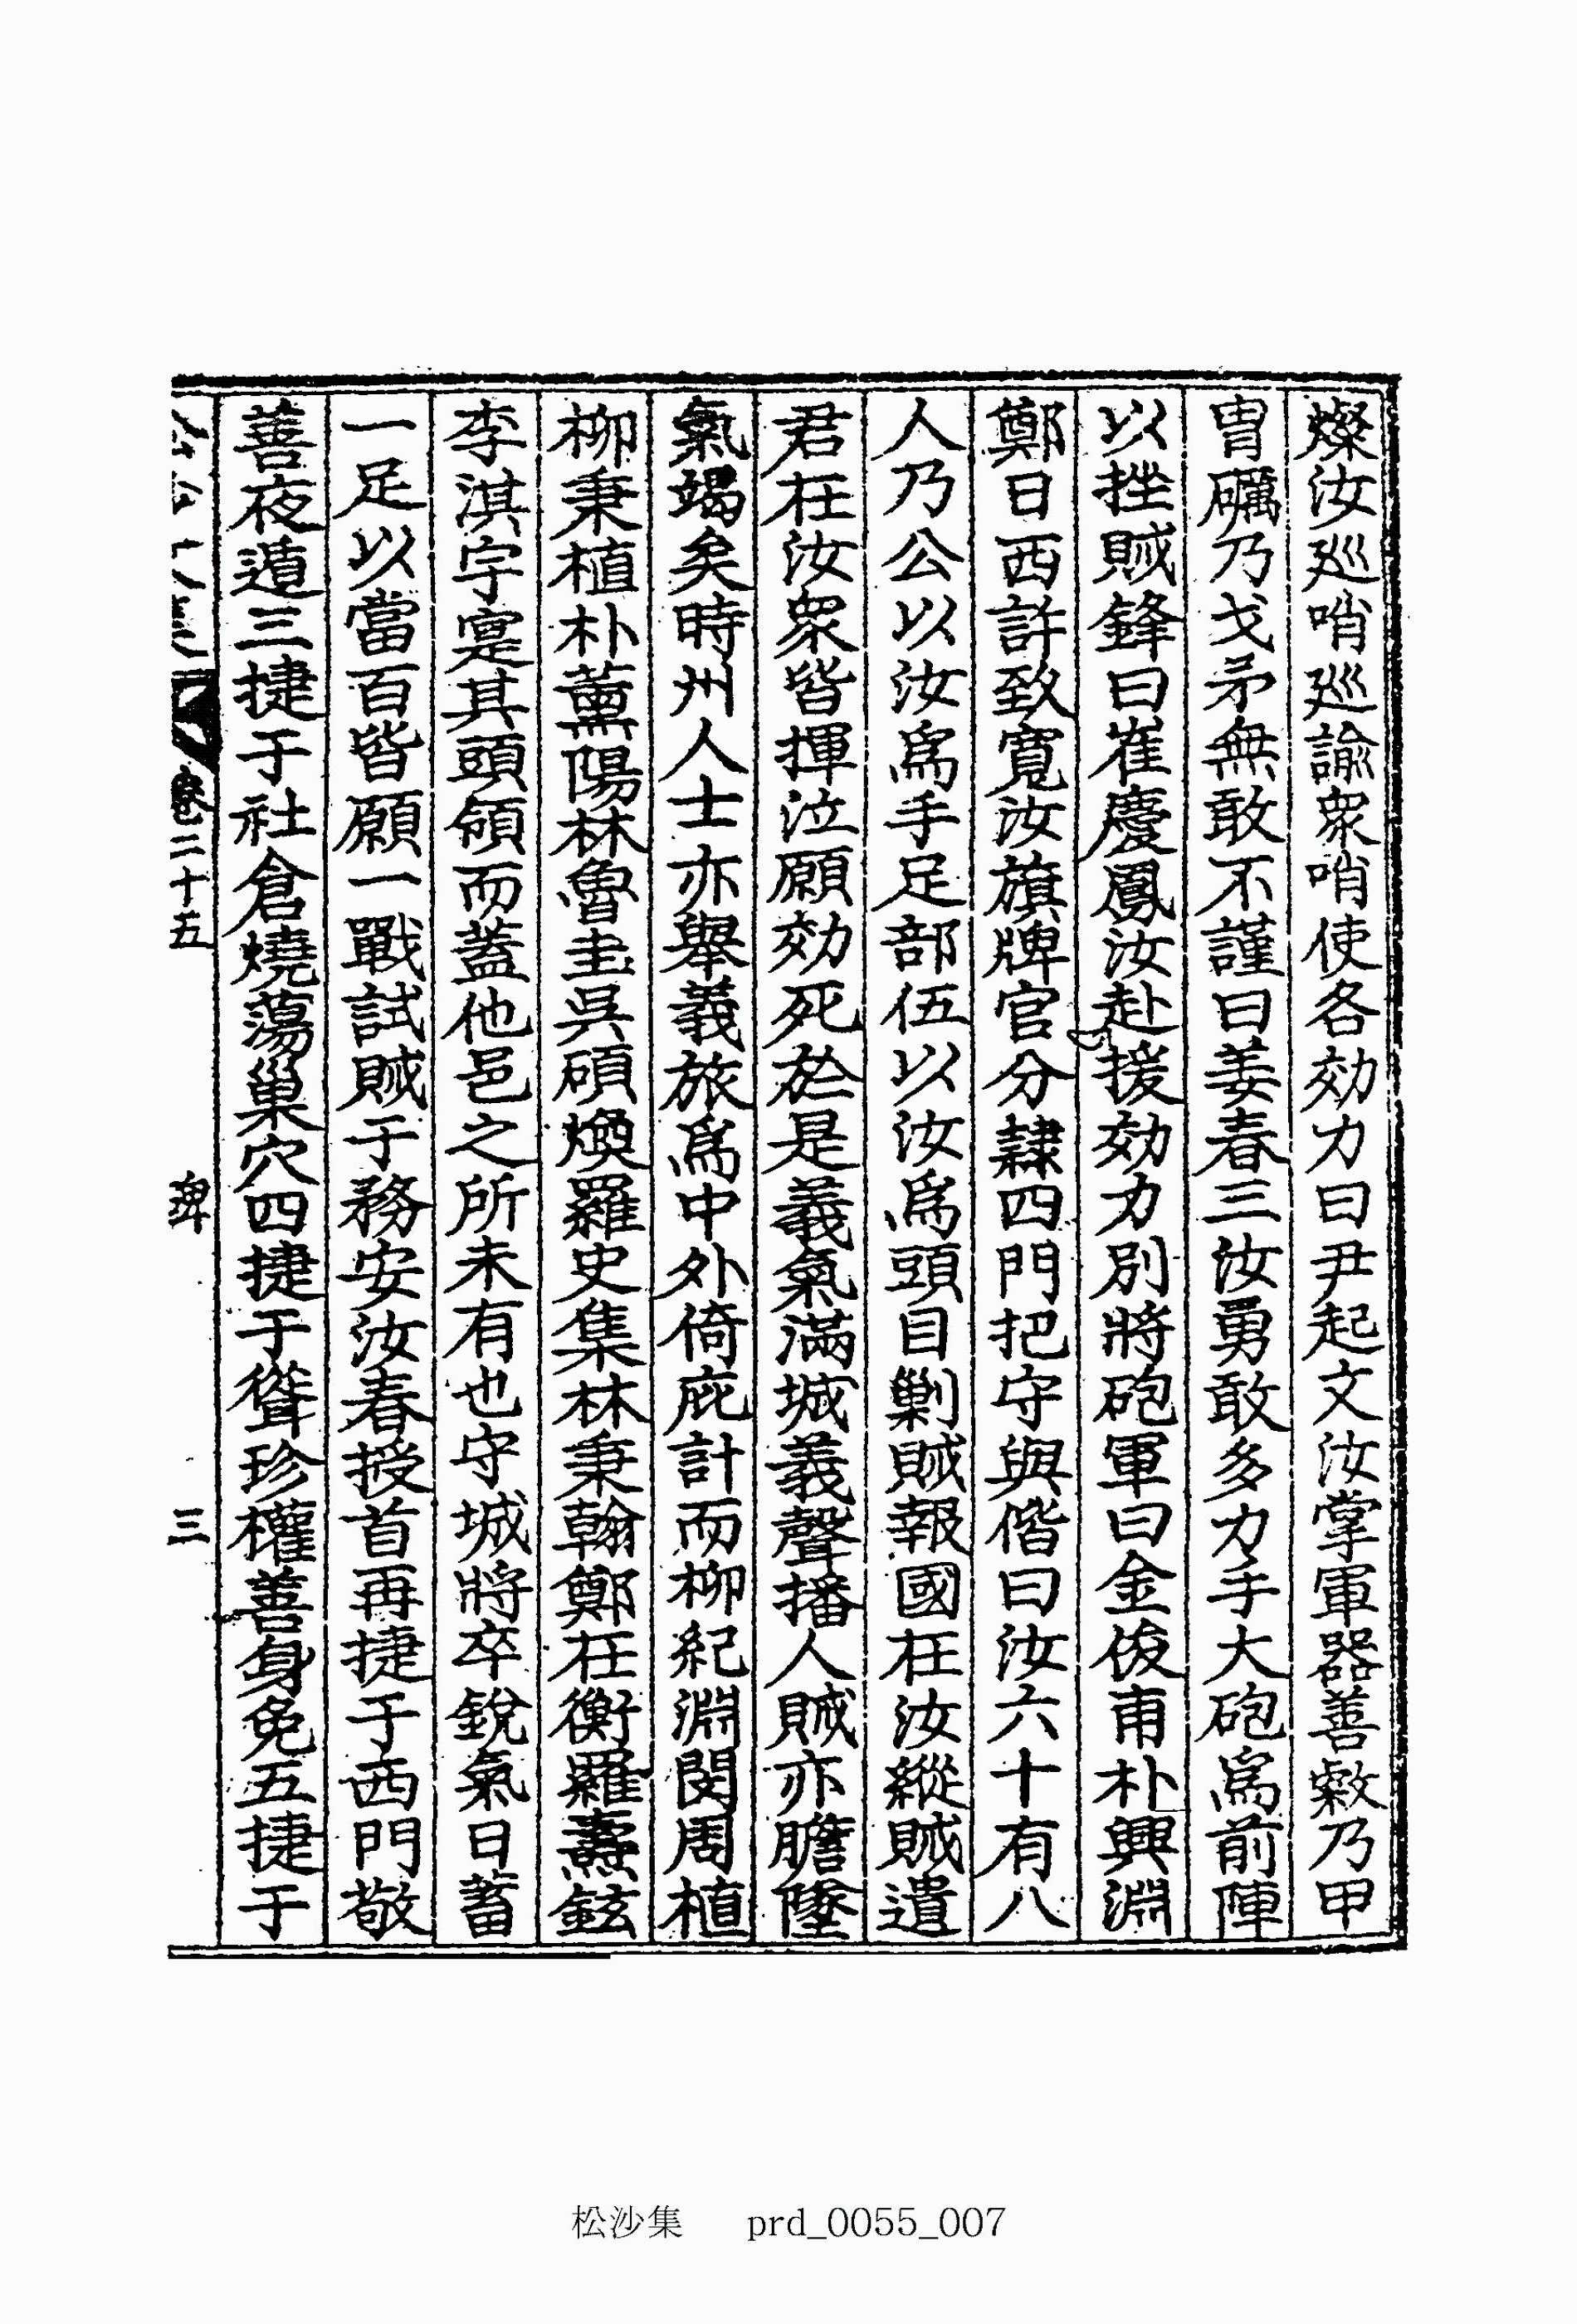 燦汝廵哨廵諭衆哨使各効力曰尹起文汝掌軍器善敹乃甲
冑礪乃戈矛無敢不謹曰姜春三汝勇敢多力手大砲爲前陣
以挫賊鋒曰崔慶鳳汝赴援効力別將砲軍曰金俊甫朴興淵
鄭日西許致寬汝旗牌官分隷四門把守與偕曰汝六十有八
人乃公以汝爲手足部伍以汝爲頭目剿賊報國在汝縱賊遺
君在汝衆皆揮泣願効死於是義氣滿城義聲播人賊亦膽墜
氣竭矣時州人士亦擧義旅爲中外倚庇計而柳紀淵閔周植
柳秉植朴薰陽林魯圭吳碩煥羅史集林秉翰鄭在衡羅燾鉉
李淇宇寔其頭領而蓋他邑之所未有也守城將卒銳氣日蓄
一足以當百皆願一戰試賊于務安汝春授首再捷于西門敬
善夜遁三捷于社倉燒蕩巢穴四捷于聳珍權善身免五捷于
卷二十五 碑 三
松沙集 prd_0055_007